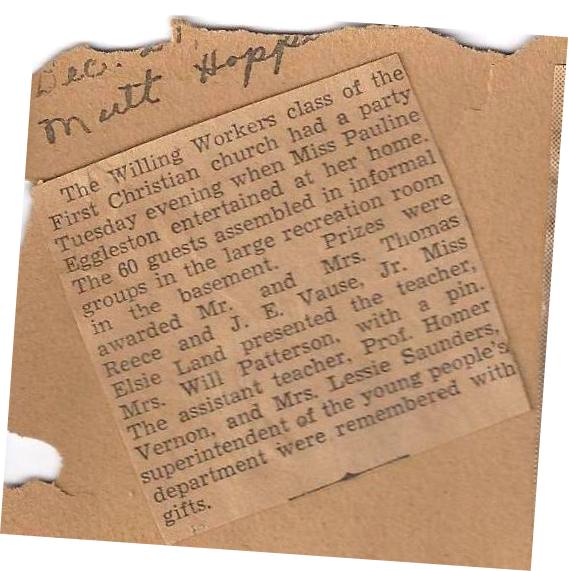 Dec. 21
Mutt Hopp
The Willing Workers class of the
First Christian church had a party
Tuesday evening when Miss Pauline
Eggleston entertained at her home.
The 60 guests assembled in informal
groups in the large recreation room
in the basement. Prizes were
awarded Mr. and Mrs. Thomas
Reece and J. E. Vause, Jr. Miss
Elsie Land presented the teacher,
Mrs. Will Patterson, with a pin.
The assistant teacher, Prof. Homer
Vernon, and Mrs. Lessie Saunders,
superintendent of the young people's
department were remembered with
gifts.